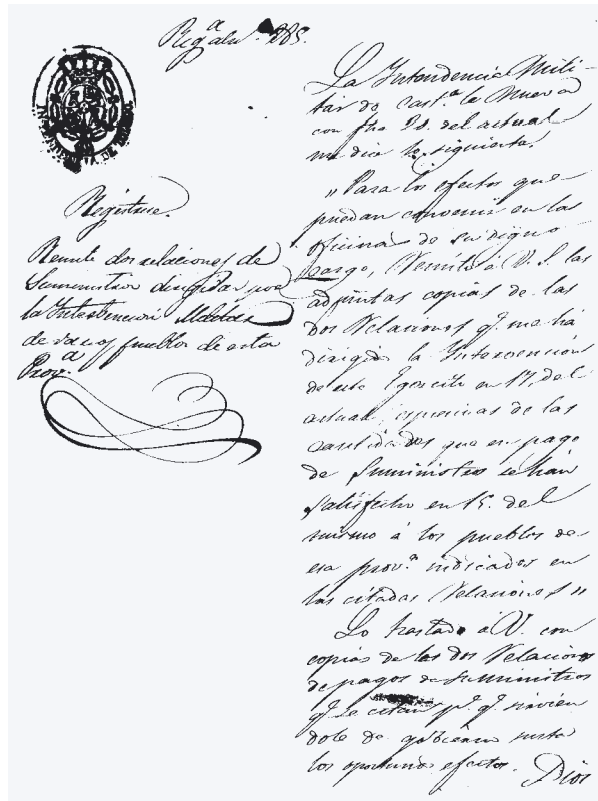 Reg.a al n.º 285.
INTENDENCIA DE
Regístrese.
Remite dos relaciones de
Suministros dirigidas por
la Intervencion Militar
de varios pueblos de esta
Prov.a
La Intendencia Mili-
tar de Cast.a la Nueva
con fha 20. del actual
me dice lo siguiente.
"Para los efectos que
puedan convenir en las
oficinas de su digno
cargo, Remito á V. S. las
adjuntas copias de las
dos Relaciones q.e me há
dirigido la Intervencion
de este Egercito en 17. del
actual, expresivas de las
cantidades que en pago
de Suministros se han
satisfecho en 15. del
mismo á los pueblos de
esa prov.a indicados en
las citadas Relaciones"
Lo traslado á V. con
copias de las dos Relaciones
de pagos de Suministros
q.e se citan p.a q.e sirvien
dole de gobierno surta
los oportunos efectos. Dios